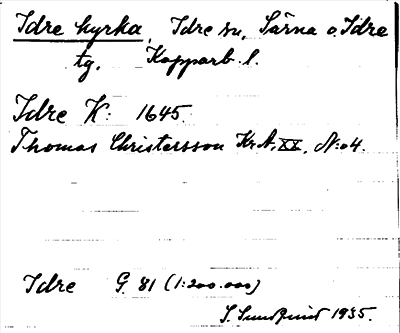 Idre kyrka, Idre sn, Särna o. Idre
tg. Kopparb. l.
Idre K: 1645.
Thomas Christersson Kr.A. XX, N:o 4.
Idre G. 81 (1:200.000)
S. Sundquist 1935.